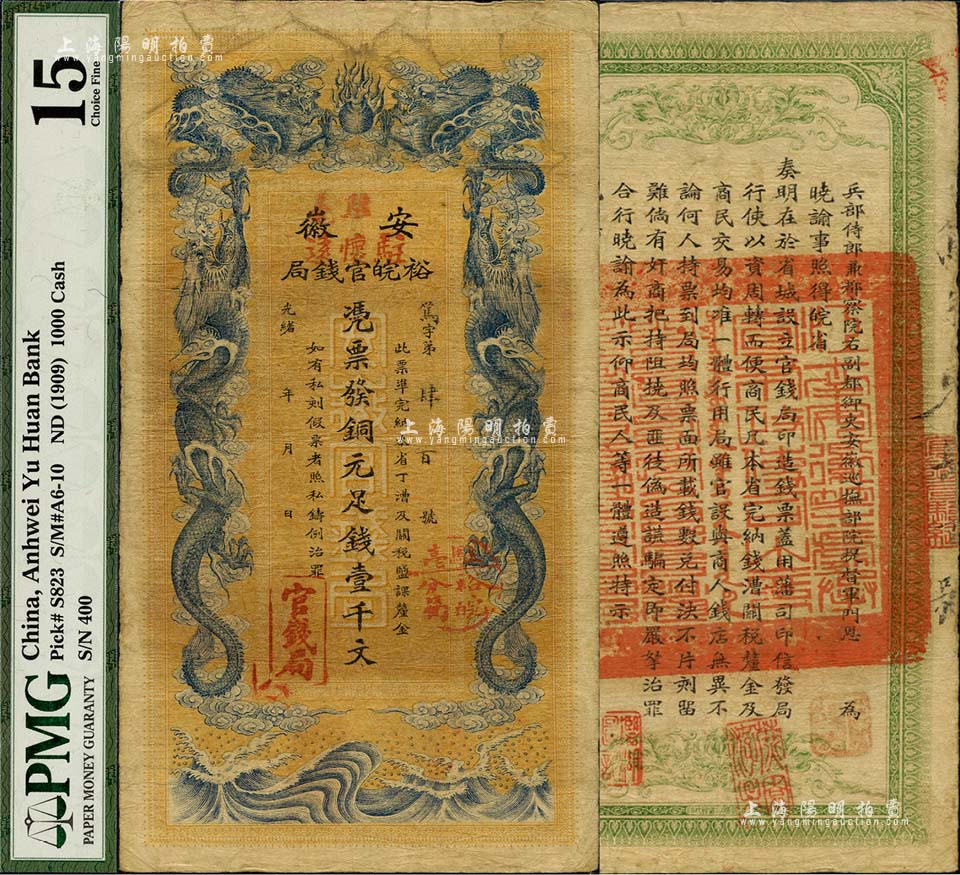 PMG
PAPER MONEY GUARANTY
China, Anhwei Yu Huan Bank
Pick# S823 S/M#A6-10 ND (1909) 1000 Cash
S/N 400
15
Choice Fine
上海陽明拍賣
www.yangmingauction.com
安徽
裕皖官錢局
篤字第肆百號
此票準完納本省丁漕及關稅鹽課釐金
憑票發銅元足錢壹千文
如有私刻假票者照私鑄例治罪
光緒 年 月 日
官錢局
壹分局
上海陽明拍賣
www.yangmingauction.com
兵部侍郎兼都察院右副都御史安徽巡撫部院提督軍門恩 為
曉諭事照得皖省
奏明在於省城設立官錢局印造錢票蓋用藩司印信發局
行使以資周轉而便商民凡本省完納錢漕關稅釐金及
商民交易均准一體行用局雖官設與商人錢店無異不
論何人持票到局均照票面所載錢數兌付決不片刻留
難倘有奸商把持阻撓及匪徒偽造誆騙定即嚴拏治罪
合行曉諭為此示仰商民人等一體遵照特示
上海陽明拍賣
www.yangmingauction.com
上海陽明拍賣
www.yangmingauction.com